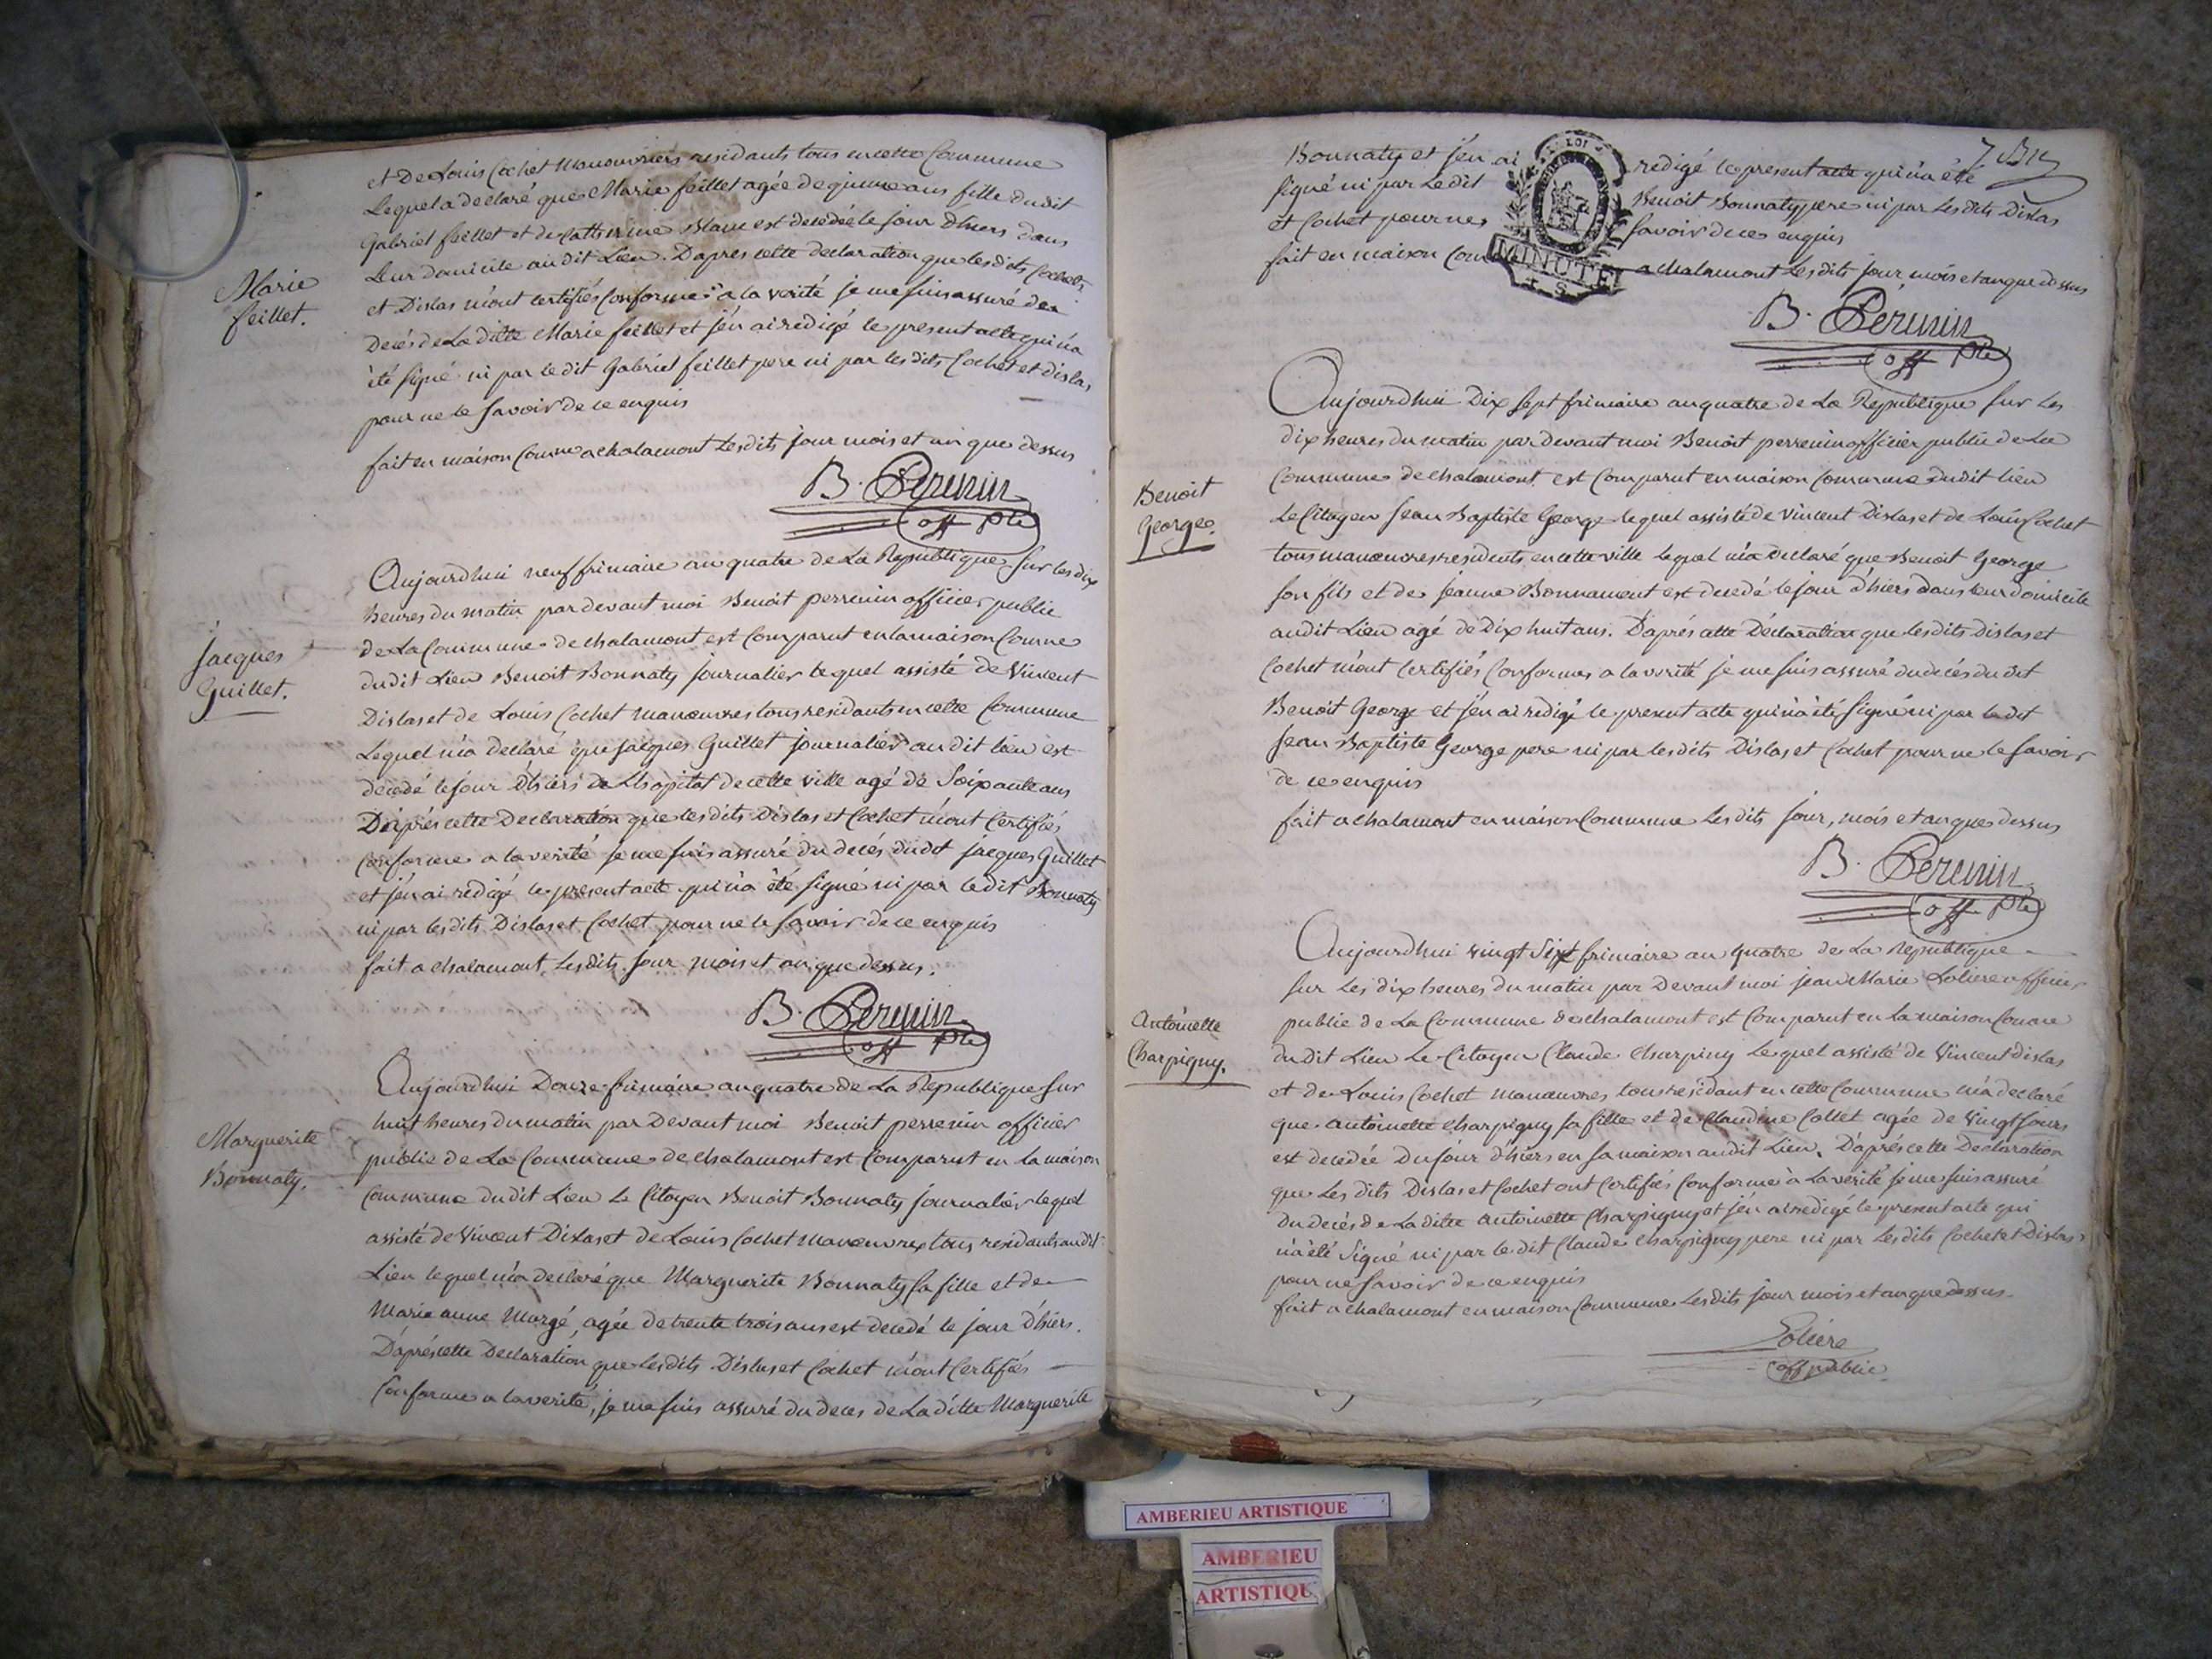 et De Louis Cochet Manouvriers residants tous en cette Commune
Lequel a declaré que Marie feillet agée de quinze ans fille dudit
Gabriel feillet et de Catherine Blanc est decedée le jour D'hiers dans
Leur domicile audit Lieu. D'apres cette declaration que lesdits Cochet
et Dislas m'ont certifiés Conforme a la verité je me suis assuré du
Decés de La ditte Marie feillet et j'en ai redigé le present acte qui n'a
été signé ni par le dit Gabriel feillet pere ni par les dits Cochet et dislas
pour ne le savoir de ce enquis
fait en maison Comne a chalamont Lesdits jour mois et an que dessus
Marie
feillet.
B. Perenin
off plic
Aujourdhui neuf frimaire an quatre de La Republique sur les dix
heures du matin par devant moi Benoit perrenin officier public
de La Commune de chalamont est Comparut en la maison Comne
dudit Lieu Benoit Bonnaty journalier lequel assisté de Vincent
Dislas et de Louis Cochet manoeuvres tous residants en cette Commune
Lequel m'a declaré que jacques Guillet journalier au dit lieu est
decedé le jour d'hiers de L'hopital de cette ville agé de Soixante ans
D'après cette Declaration que les dits Dislas et Cochet m'ont Certifiés
Conforme a la verité je me suis assuré du decés dudit jacques Guillet
et j'en ai redigé le present acte qui n'a été signé ni par le dit Bonnaty
ni par lesdits Dislas et Cochet pour ne le savoir de ce enquis
fait a chalamont Lesdits jour mois et an que dessus.
Jacques
Guillet.
B. Perenin
off plic
Aujourdhui Douze frimaire an quatre de La Republique sur
huit heures du matin par Devant moi Benoit perrenin officier
public de La Commune de chalamont est Comparut en la maison
Commune dudit Lieu Le Citoyen Benoit Bonnaty journalier lequel
assisté de Vincent Dislas et de Louis Cochet Manoeuvres tous residants audit
Lieu lequel m'a declaré que Marguerite Bonnaty sa fille et de
Marie anne Margé, agée de trente trois ans est decedé le jour D'hiers.
D'après cette Declaration que lesdits Dislas et Cochet m'ont Certifiés
Conforme a la verité, je me suis assuré du deces de La ditte Marguerite
Marguerite
Bonnaty.
Bonnaty et j'en ai redigé le present acte qui n'a été
signé ni par Le dit Benoit Bonnaty pere ni par Les dits Dislas
et Cochet pour ne savoir de ce enquis
fait en maison Com a chalamont Les dits jour, mois et an que dessus
LOI
MINUTE
B. Perenin
off plic
Aujourdhui Dix Sept frimaire an quatre de La Republique sur Les
dix heures du matin par devant moi Benoit perrenin officier public de La
Commune de chalamont est Comparut en maison Commune dudit lieu
Le Citoyen Jean Baptiste George lequel assisté de Vincent Dislas et de Louis Cochet
tous manoeuvres residents en cette ville lequel m'a declaré que Benoit George
son fils et de jeanne Bonnamont est decedé le jour d'hiers dans leur domicile
audit Lieu agé de Dix huit ans. D'après cette Déclaration que lesdits dislas et
Cochet m'ont Certifiés Conformes a la verité je me suis assuré du decés du dit
Benoit George et j'en ai redigé le present acte qui n'a été signé ni par le dit
Jean Baptiste George pere ni par les dits Dislas et Cochet pour ne le savoir
de ce enquis
fait a chalamont en maison Commune Les dits jour, mois et an que dessus
Benoit
George.
B. Perenin
off plic
Aujourdhui vingt Sixt frimaire an quatre de La Republique
sur Les dix heures du matin par Devant moi jean Marie Loliere officier
public de La Commune de chalamont est Comparut en La maison Comne
du dit Lieu Le Citoyen Claude Charpiny Lequel assisté de Vincent dislas
et de Louis Cochet manoeuvres tous residant en cette Commune m'a declaré
que antoinette Charpigny sa fille et de Claudine Collet agée de Vingt jours
est decedée Du jour d'hiers en sa maison audit Lieu. D'après cette Declaration
que Les dits Dislas et Cochet ont Certifiés Conforme à La verité je me suis assuré
Du decés de La ditte Antoinette Charpigny et j'en ai redigé le present acte qui
n'a été Signé ni par le dit Claude Charpigny pere ni par Les dits Cochet et Dislas
pour ne savoir de ce enquis
fait a chalamont en maison Commune Les dits jour mois et an que dessus
Antoinette
Charpigny.
Loliere
off public
AMBERIEU ARTISTIQUE
AMBERIEU
ARTISTIQU